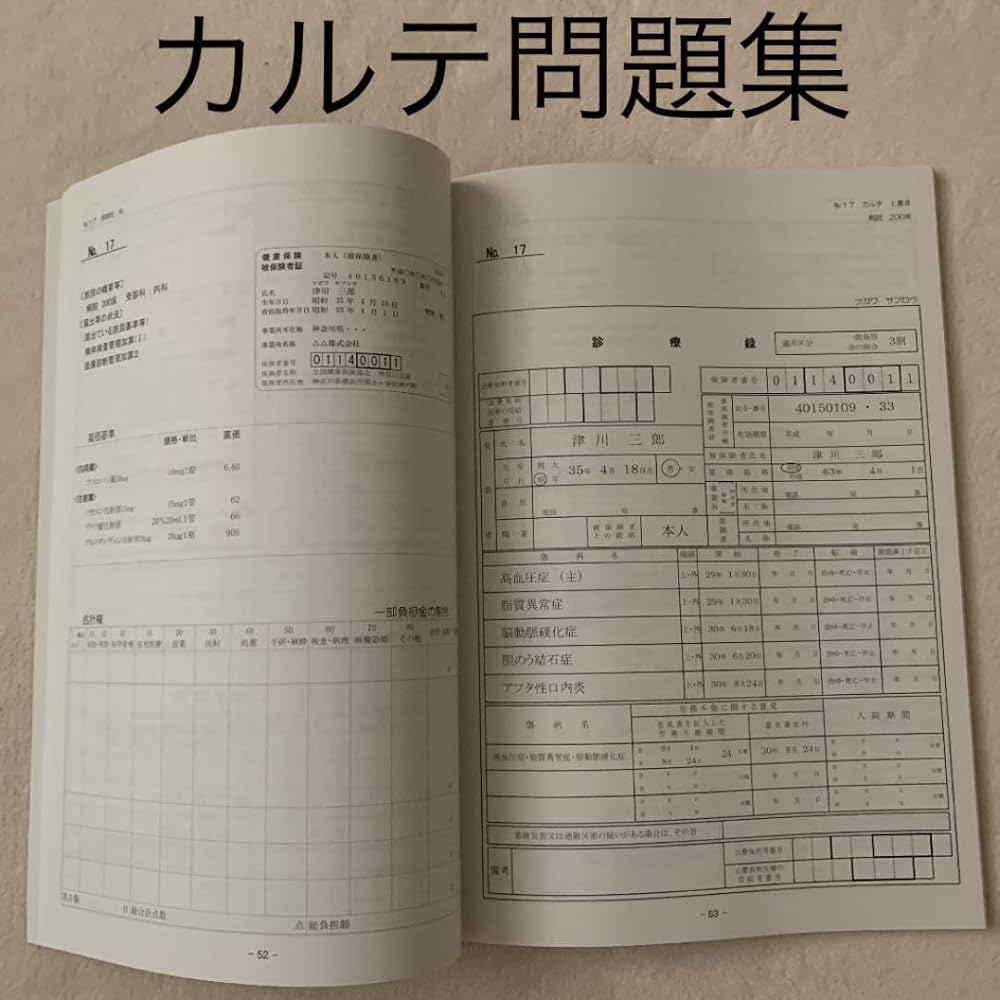 カルテ問題集
No. 17
【施設の概要等】
病院 200床 受診科:内科
【届出等の状況】
(届出ている施設基準等)
検体検査管理加算(Ⅰ)
画像診断管理加算2
健康保険 本人(被保険者)
被保険者証
記号
ツガワ サブロウ
氏名 津川 三郎
生年月日 昭和 35年 4月 18日
資格取得年月日 昭和 63年 4月 1日
事業所所在地 神奈川県・・・
事業所名称 △△株式会社
保険者番号 01140011
薬価基準
規格・単位 薬価
<内用薬>
10mg1錠 6.60
<注射薬>
15mg1管 62
20%20mL1管 66
20μg1瓶 908
会計欄 一部負担金の割合
20 30 40 50 60 70 80
投薬 注射 処置 手術・麻酔 検査・病理 画像診断 その他
日 総合計点数
点 総負担額
- 52 -
No.17 カルテ 上書き
病院 200床
No. 17
ツガワ サブロウ
診療録
3割
公費負担者番号
保険者番号 01140011
記号・番号 40150109・33
有効期限 平成 年 月 日
氏名 津川 三郎
被保険者氏名 津川 三郎
生年月日 明 大 昭 平 35年 4月 18日生 男・女
資格取得 昭和 平成 63年 4月 1日
住所
電話 局 番
所在地
電話 局 番
名称
職業
被保険者との続柄 本人
所在地
電話 局 番
名称
傷病名 職務 開始 終了 転帰 期間満了予定日
高血圧症(主) 上・外 29年 1月30日 年 月 日 治ゆ・死亡・中止 年 月 日
脂質異常症 上・外 29年 1月30日 年 月 日 治ゆ・死亡・中止 年 月 日
脳動脈硬化症 上・外 30年 6月18日 年 月 日 治ゆ・死亡・中止 年 月 日
胆のう結石症 上・外 30年 6月20日 年 月 日 治ゆ・死亡・中止 年 月 日
アフタ性口内炎 上・外 30年 8月24日 年 月 日 治ゆ・死亡・中止 年 月 日
傷病名
労務不能に関する意見
意見書に記入した労務不能期間
意見書交付
入院期間
高血圧症・脂質異常症・脳動脈硬化症
自 8月 1日
至 8月 24日
24 日間
30年 8月 24日
業務災害又は通勤災害の疑いがある場合は、その旨
備考
公費負担者番号
公費負担医療の受給者番号
- 53 -